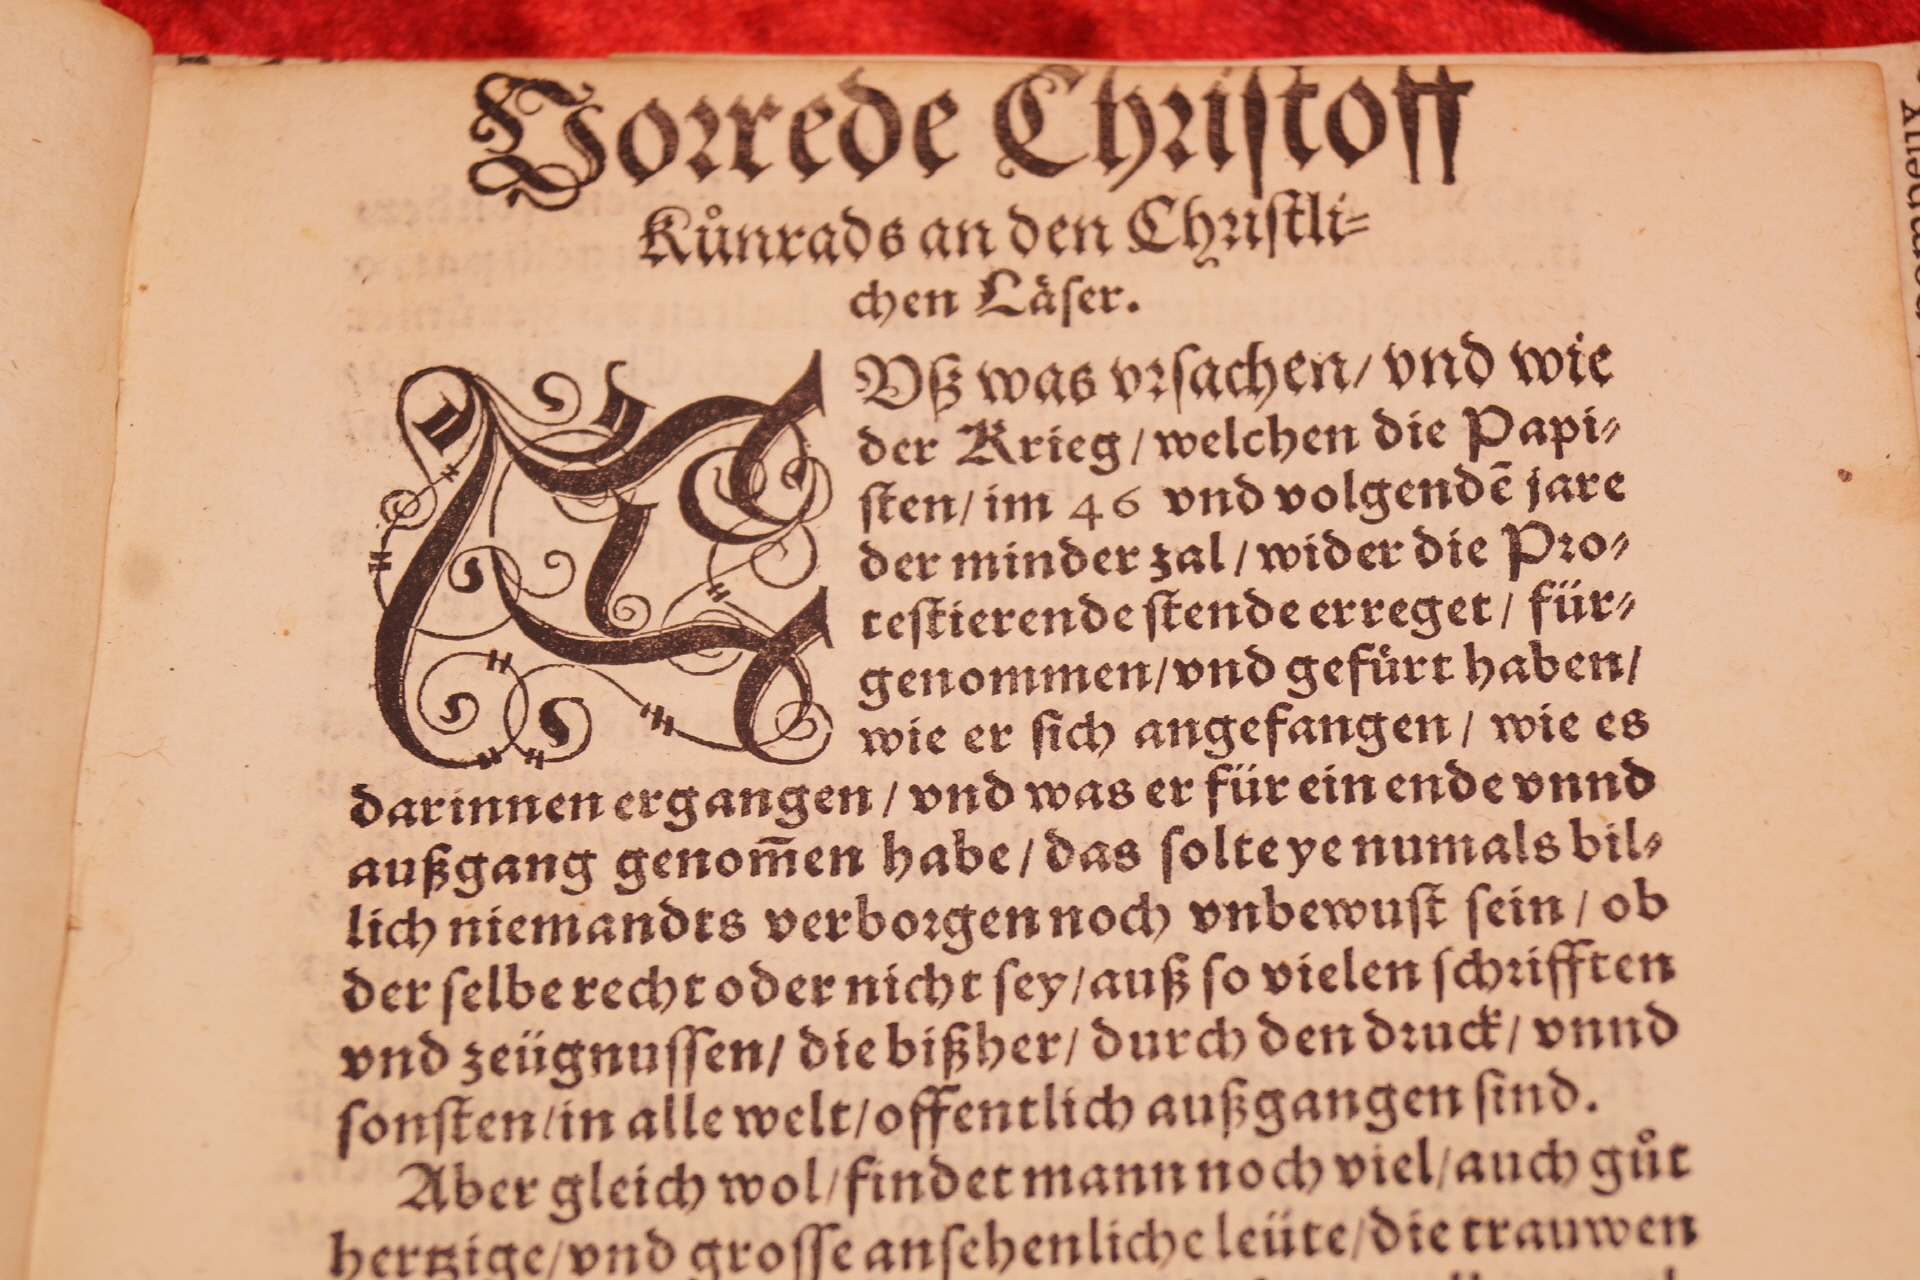 Vorrede Christoff
Kůnrads an den Christli⸗
chen Läser.
AVß was vrsachen/ vnd wie
der Krieg/ welchen die Papi⸗
sten/ im 46 vnd volgendē jare
der minder zal/ wider die Pro⸗
testierende stende erreget/ für⸗
genommen/ vnd gefůrt haben/
wie er sich angefangen/ wie es
darinnen ergangen/ vnd was er für ein ende vnnd
außgang genom̄en habe/ das solte ye numals bil⸗
lich niemandts verborgen noch vnbewust sein/ ob
der selbe recht oder nicht sey/ auß so vielen schrifften
vnd zeügnussen/ die bißher/ durch den druck/ vnnd
sonsten/ in alle welt/ offentlich außgangen sind.
Aber gleich wol/ findet mann noch viel/ auch gůt
hertzige/ vnd grosse ansehenliche leüte/ die trauwen